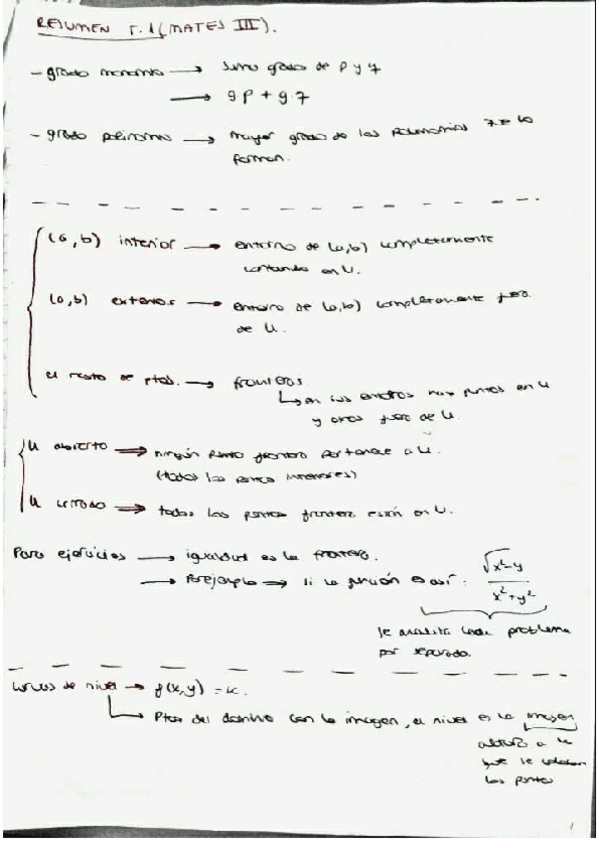 RESUMEN T.1 (MATES III).
- grado monomio → suma grados de p y q
→ g.p + g.q
- grado polinomio → mayor grado de los polinomios que lo
forman.
(a,b) interior → entorno de (a,b) completamente
contenido en U.
(a,b) exterior → entorno de (a,b) completamente fuera
de U.
el resto de ptos. → fronteras
↳ en sus entornos hay puntos en U
y otros fuera de U.
U abierto ⇒ ningún punto frontera pertenece a U.
(todos los puntos interiores)
U cerrado ⇒ todos los puntos frontera están en U.
Para ejercicios → igualdad es la frontera.
→ Por ejemplo → si la función es así: √x²-y / x²+y²
se analiza cada problema
por separado.
curvas de nivel → f(x,y) = k.
↳ Ptos del dominio con la imagen, el nivel es la imagen
altura a la
que se
los puntos
1